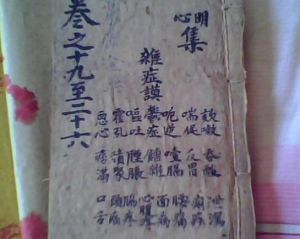 明心集
雜症謨
咳嗽 吞酸 泄瀉
喘促 反胃 痢疾
呃逆 噎膈 腰痛
鬱症 嘈雜 面病
嘔吐 腫脹 心腹痛
霍乱 積聚 頭病
惡心 痞滿 口舌
卷之十九至二十六